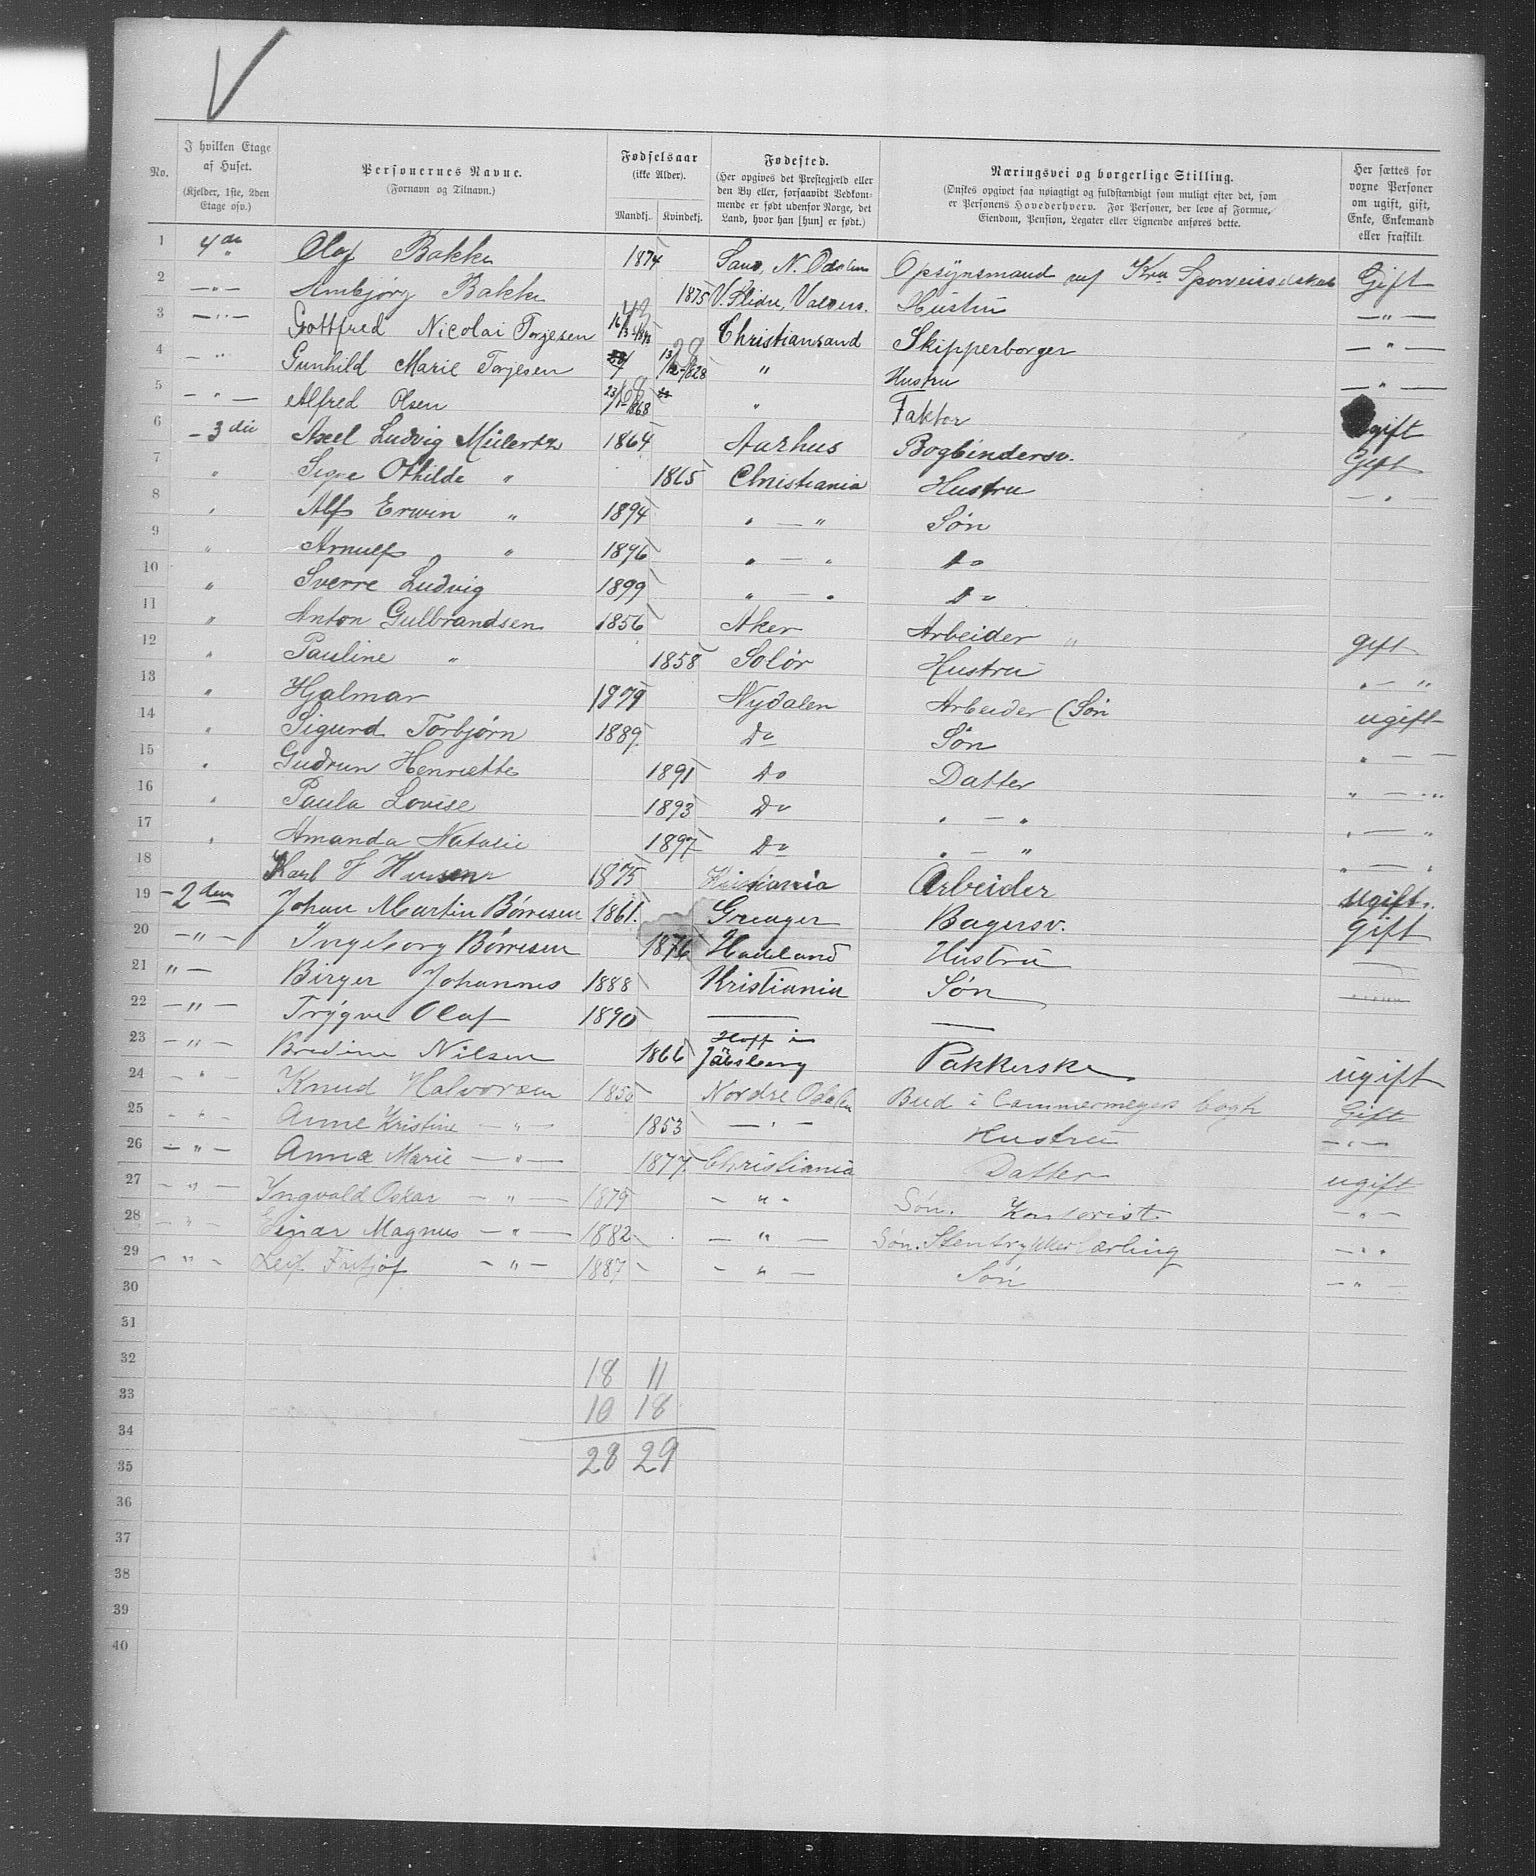 V
No.
I hvilken Etage af Huset. (Kjelder, 1ste, 2den Etage osv.)
Personernes Navne. (Fornavn og Tilnavn.)
Fødselsaar (ikke Alder). Mandkj. Kvindekj.
Fødested. (Her opgives det Prestegjæld eller den By eller, forsaavidt Vedkommende er født udenfor Norge, det Land, hvor han [hun] er født.)
Næringsvei og borgerlige Stilling. (Ønskes opgivet saa nøiagtigt og fuldstændigt som muligt efter det, som er Personens Hovederhverv. For Personer, der leve af Formue, Eiendom, Pension, Legater eller Lignende anføres dette.)
Her sættes for voxne Personer om ugift, gift, Enke, Enkemand eller fraskilt.
1 4de Olaf Bakke 1874 Sand, N. Odalen Opsynsmand ved Kra Sporveisselskab Gift
2 — " — Ambjørg Bakke 1875 V. Slidre, Valdres. Hustru — " —
3 — " — Gottfred Nicolai Torjesen 43 16/3 Christiansand Skipperborger — " —
4 — " Gunhild Marie Torjesen 28 13/12-1828 " Hustru — " —
5 — " — Alfred Olsen 68 23/1-1868 " Faktor ugift
6 — 3die Axel Ludvig Müllertz 1864 Aarhus Bogbindersv. Gift
7 " Signe Othilde " 1865 Christiania Hustru — "
8 " Alf Erwin " 1894 " — " Søn
9 " Arnulf " 1896 " — " Do
10 " Sverre Ludvig 1899 " — " Do
11 " Anton Gulbrandsen 1856 Aker Arbeider " gift
12 " Pauline " 1858 Solør Hustru " — "
13 " Hjalmar 1879 Nydalen Arbeider (Søn ugift
14 " Sigurd Torbjørn 1889 Do Søn " — —
15 " Gudrun Henriette 1891 Do Datter " — "
16 " Paula Lovise 1893 Do " — " " — "
17 " Amanda Natalie 1897 Do " — " " — "
18 Karl H Hansen 1875 Kristiania Arbeider ugift.
19 — 2den Johan Martin Børresen 1861. Greager Bagersv. Gift
20 — " — Ingeborg Børresen 1876 Hadeland Hustru —
21 " — Birger Johannes 1888 Kristiania Søn
22 — " — Trygve Olaf 1890 — —
23 — " — Bredine Nilsen 1866 Hoff i Jarlsberg Pakkerske ugift
24 — " — Knud Halvorsen 1850 Nordre Odalen Bud i Cammermeyers bogh Gift
25 — " — Anne Kristine — " — 1853 — " — Hustru — " —
26 — " — Anna Marie — " — 1877. Christiania Datter ugift
27 — " — Yngvald Oskar — " — 1879 — " — Søn. Kontorist. — " —
28 — " — Ejnar Magnus — " — 1882 — " — Søn. Stentrykkerlærling — " "
29 — " — Leif Fritjof — " — 1887 — " — Søn — "
30
31
32 18 11
33 10 18
34
35 28 29
36
37
38
39
40